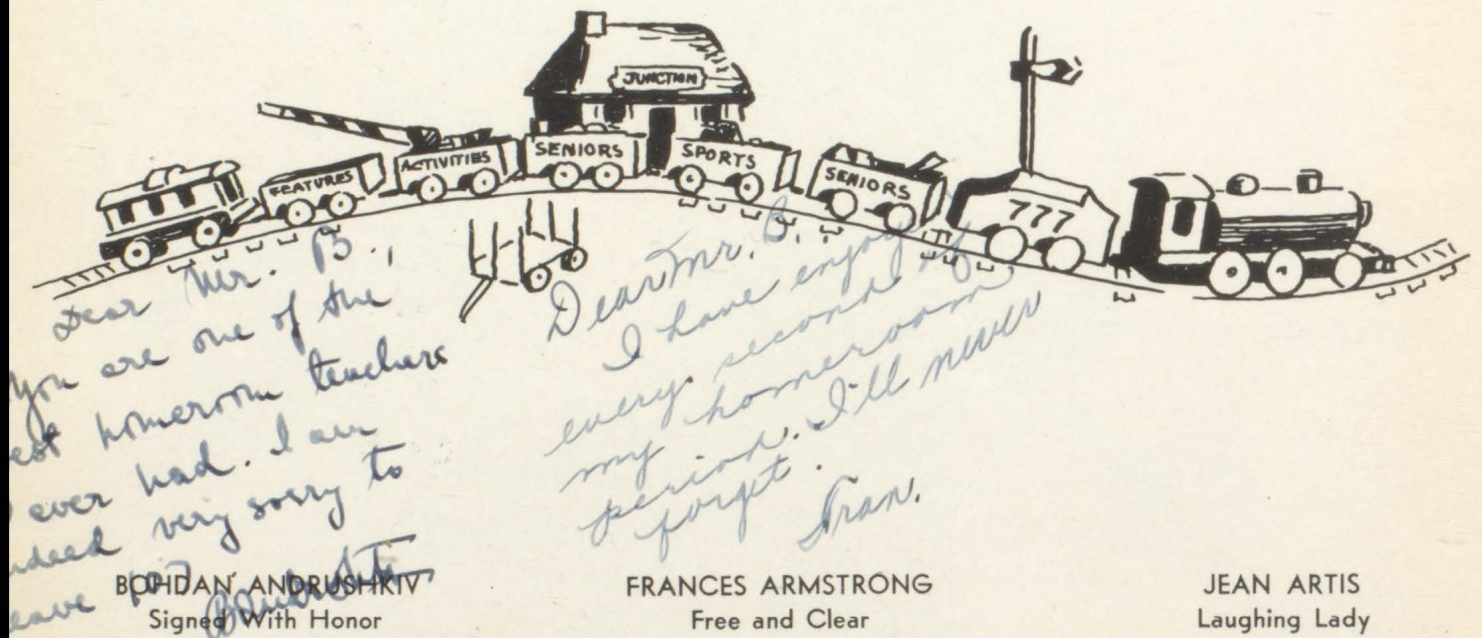 JUNCTION
FEATURES
ACTIVITIES
SENIORS
SPORTS
SENIORS
777
Dear Mr. B.,
You are one of the
est homeroom teachers
ever had. I am
ndeed very sorry to
eave 107
Dear Mr. B.,
I have enjoyed
every second of
my homeroom
period. I'll never
forget.
Fran.
BOHDAN ANDRUSHKIV
Signed With Honor
FRANCES ARMSTRONG
Free and Clear
JEAN ARTIS
Laughing Lady